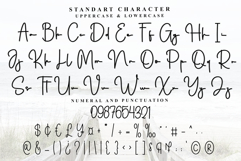 STANDART CHARACTER
UPPERCASE & LOWERCASE
Aa Bb Cc Dd Ee Ff Gg Hh Ii
Jj Kk Ll Mm Nn Oo Pp Qq Rr
Ss Tt Uu Vv Ww Xx Yy Zz
NUMERAL AND PUNCTUATION
0987654321